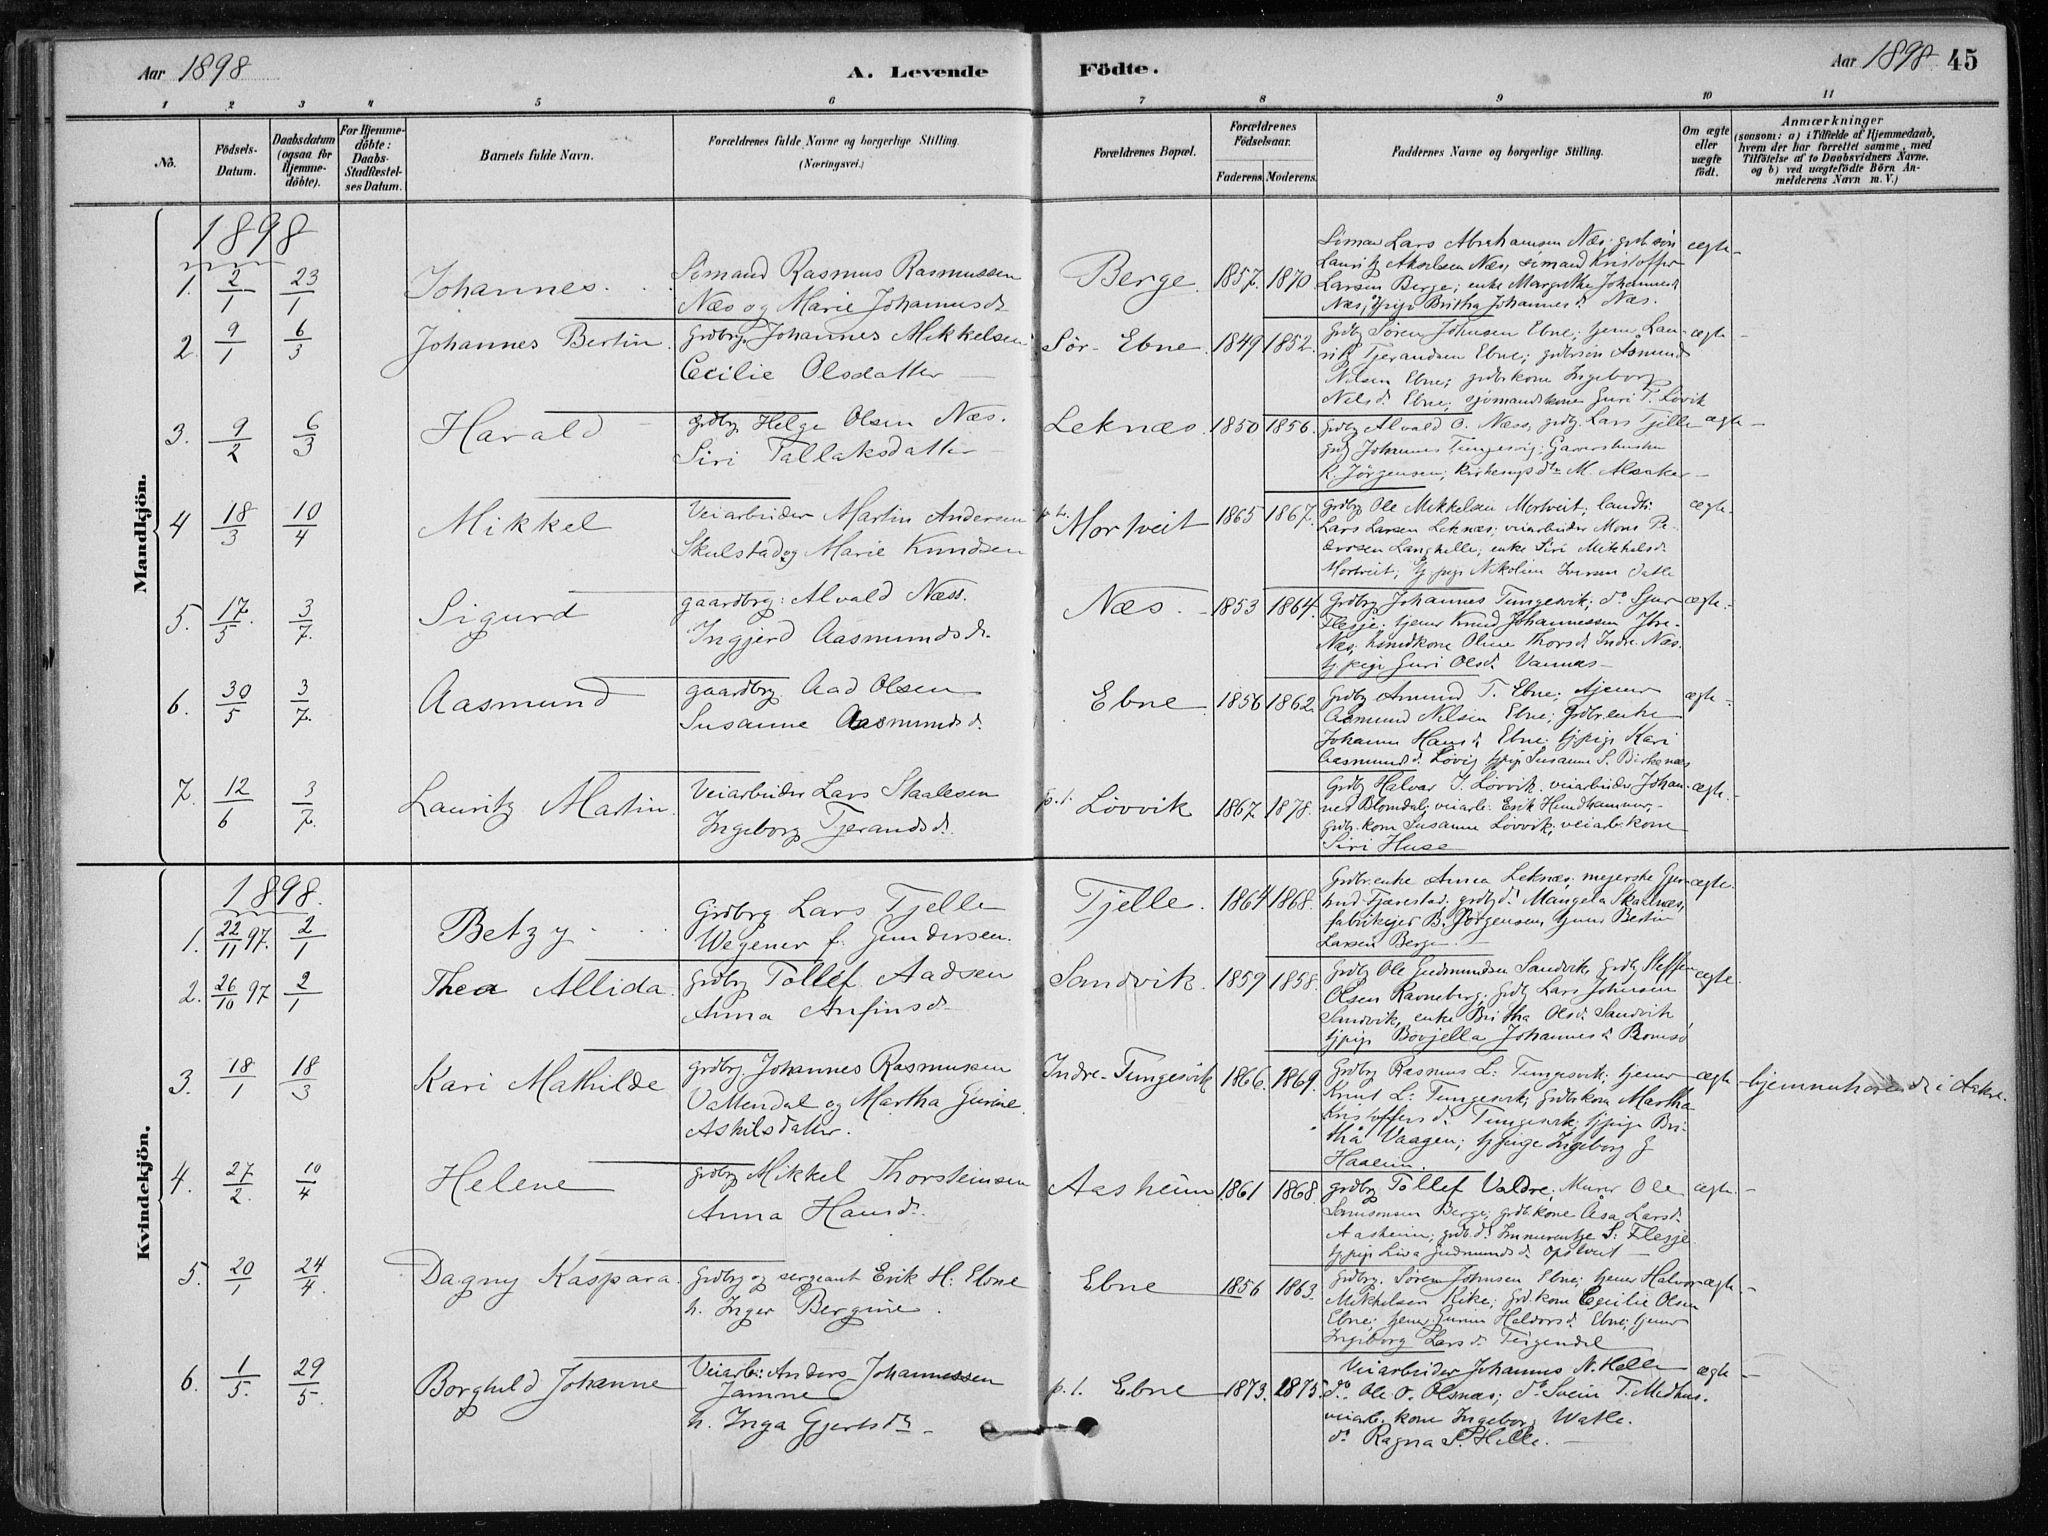 Aar 1898
A. Levende
Födte.
Aar 1898 45
1 2 3 4 5 6 7 8 9 10 11
No.
Födsels-Datum.
Daabsdatum (ogsaa for Hjemme-döbte).
For Hjemme-döbte: Daabs-Stadfæstel-ses Datum.
Barnets fulde Navn.
Forældrenes fulde Navne og borgerlige Stilling.
(Næringsvei.)
Forældrenes Bopæl.
Forældrenes Födselsaar.
Faderens. Moderens.
Faddernes Navne og borgerlige Stilling.
Om ægte eller uægte födt.
Anmærkninger
(saasom: a) i Tilfælde af Hjemmedaab,
hvem der har forrettet samme, med
Tilföielse af to Daabsvidners Navne.
og b) ved uægtefödte Börn An-
melderens Navn m. V.)
Mandkjön.
1898
1. 2/1 23/1 Johannes.
Sömand Rasmus Rasmussen
Næs og Marie Johannesd.
Berge 1857. 1870
Sömand Lars Abrahamsen Næs; grdb.sön
Lauritz Akselsen Næs, sömand Kristoffer
Larsen Berge; enke Margrethe Johannesd
Næs, tjpige Britha Johannesd. Næs.
ægte
2. 9/1 6/3 Johannes Bertin.
Grdbrg. Johannes Mikkelsen
Cecilie Olsdatter
Sör-Ebne 1849 1852.
Grdbg Sören Johnsen Ebne; tjener Lau-
rik Tjerandsen Ebne; grdbrsön Asmund
Nilsen Ebne; grdbrkone Ingeborg
Nelsd. Ebne; sjömandskone Guri T. Lövik
ægte
3. 9/2 6/3 Harald
grdbrg Helge Olsen Næs.
Siri Tallaksdatter
Leknæs. 1850 1856.
Grdbg Alvald O. Næss, grdbg. Lars Tjelle
grdbg Johannes Tungesvig;
K. Jörgensen; M. Alsaker
ægte
4 18/3 10/4 Mikkel
Veiarbeider Martin Andersen
Skulstad og Marie Knudsen
p.t. Mortveit 1865 1867.
grdbrg Ole Mikkelsen Mortveit; landh:
Lars Larsen Leknæs; veiarbeider Mons Pe-
dersen Langhelle; enke Siri Mikkelsd.
Mortveit; tj.pige Nikoline Iversen Vatle
ægte
5. 17/5 3/7. Sigurd
gaardbrg: Alvald Næss.
Ingjerd Aasmundsd.
Næs. 1853 1864.
Grdbrg Johannes Tungesvik; do Sjur
Flesje. tjener Knud Johannessen Ytre-
Næs; kone Oline Thorsd. Indre Næs.
tj pige Guri Olsd. Vannæs
ægte
6. 30/5 3/7. Aasmund
gaardbrg. Aad Olsen
Susanne Aasmundsd.
Ebne. 1856 1862.
Grdbg Amund T. Ebne; tjener
Aasmund Nilsen Ebne; grdbr.enke
Johanne Hansd. Ebne; tjpige Kari
Aasmundsd. Lövig tjpige Susanne S. Birkenæs
ægte
7. 12/6 3/7. Lauritz Martin.
Veiarbeider Lars Staalesen
Ingeborg Tjerandsd.
p.t. Lövvik 1867 1878.
Grdbg Halvar J. Lövvik, veiarbeider Johan-
nes Blomdal; veiarb: Erik Hundhammer,
grdbr.kone Susanne Lövvik; veiarb.kone
Siri Huse
ægte
Kvindekjön.
1898.
1. 22/11 97. 2/1 Betzy
Grdbrg Lars Tjelle
Wegener f. Gundersen.
Tjelle. 1864 1868.
Grdbr.enke Anna Leknæs; meierske Gun-
hild Tjærestad; grdbg d. Mangela Skarnæs,
fabrikeier B. Jörgensen, tjener Bertin
Larsen Berge
ægte.
2. 26/10 97 2/1 Thea Allida.
Grdbrg Tollef Aadsen
Anna Anfinsd.
Sandvik 1859 1858.
Grdbg Ole Gudmundsen Sandvik, grdbg Steffen
Olsen Ravneberg; grdbg Lars Johnsen
Sandvik, enke Britha Olsd. Sandvik
tjpige Johannesd. Romsö
ægte.
3. 18/1 18/3 Kari Mathilde
grdbrg. Johannes Rasmussen
Vattendal og Martha Gurine
Askilsdatter.
Indre-Tungesvik 1866. 1869.
Grdbg Rasmus L. Tungesvik; tjener
Knut L. Tungesvik; grdbrkone Martha
Kristoffersd. Tungesvik; tjpige Bri-
tha Vaagen; tjpige Ingeborg J
Haaeim.
ægte
hjemmehørende i Aakre.
4. 27/2. 10/4 Helene
grdbrg Mikkel Thorsteinsen
Anna Hansd.
Aasheim 1861 1868.
grdbg Tollef Valdre; Murer Ole
Samsonsen Berge; grdb.kone Åsa Larsd.
Aasheim; grdb.d. S: Flesje
tjpige Liva Gudmundsd. Opsveit
ægte.
5. 20/1 24/4. Dagny Kaspara.
Grdbrg og sergeant Erik H. Ebne
h. Inger Bergine.
Ebne 1856 1863.
Grdbrg. Sören Johnsen Ebne; tjener Halvor
Mikkelsen Rike; grd.kone Cecilie Olsen
Ebne; tjener Gurine Haldorsd. Ebne; tjener
Ingeborg Larsd. Teigendal
ægte
6. 1/5. 29/5. Borghild Johanne
Veiarb: Anders Johannessen
Jamne
h. Inga Gjertsdtr
p.t. Ebne 1873. 1875.
Veiarbeider Johannes N. Helle
do Ole O. Olsnæs; do Svein T. Medhus.
veiarb.kone Ingeborg Watle.
do Ragna S. Helle.
ægte